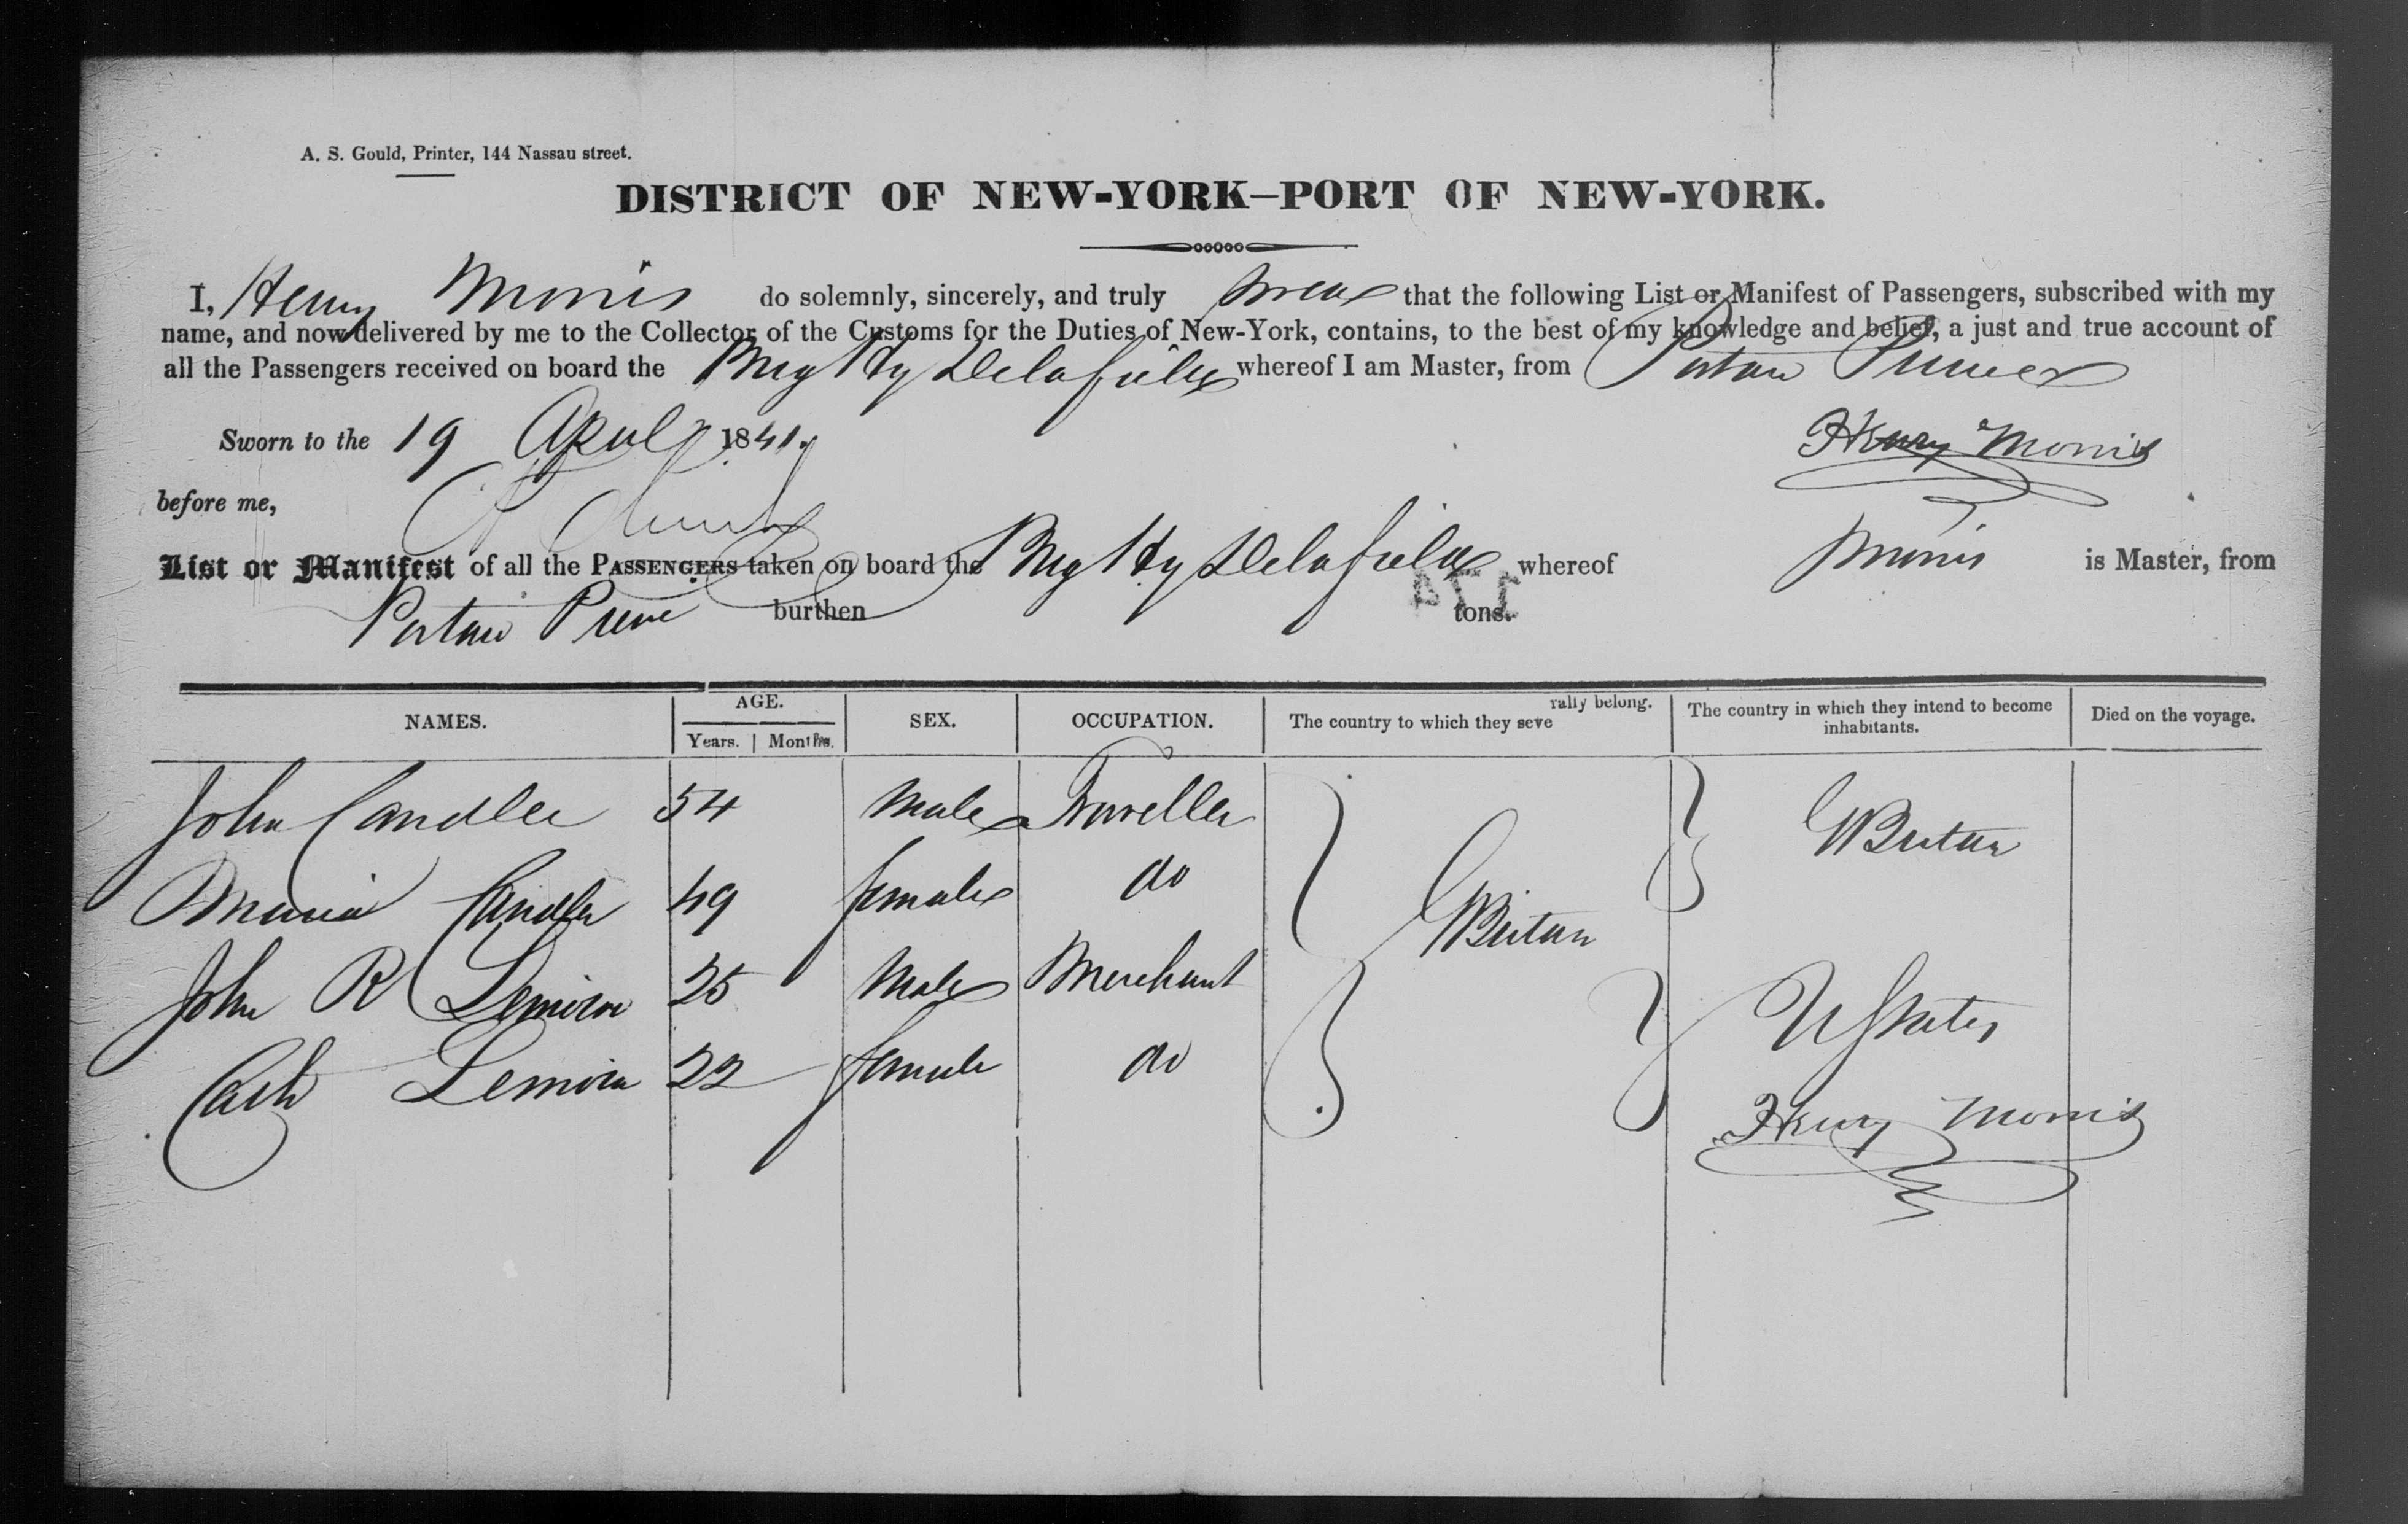 A. S. Gould, Printer, 144 Nassau street.
DISTRICT OF NEW-YORK–PORT OF NEW-YORK.
I, Henry Morris do solemnly, sincerely, and truly swear that the following List or Manifest of Passengers, subscribed with my
name, and now delivered by me to the Collector of the Customs for the Duties of New-York, contains, to the best of my knowledge and belief, a just and true account of
all the Passengers received on board the Brig Hy Delafield whereof I am Master, from Portau
Sworn to the 19 April 1841.
Henry Morris
before me,
List or Manifest of all the PASSENGERS taken on board the Brig Hy Delafield whereof Morris is Master, from
Portau burthen tons.
NAMES. AGE. Years. Months. SEX. OCCUPATION. The country to which they seve rally belong. The country in which they intend to become inhabitants. Died on the voyage.
John Candler 54 Male Traveller G Britain
Maria Candler 49 female do G Britain
John R 25 Male Merchant U States
22 female do
Henry Morris